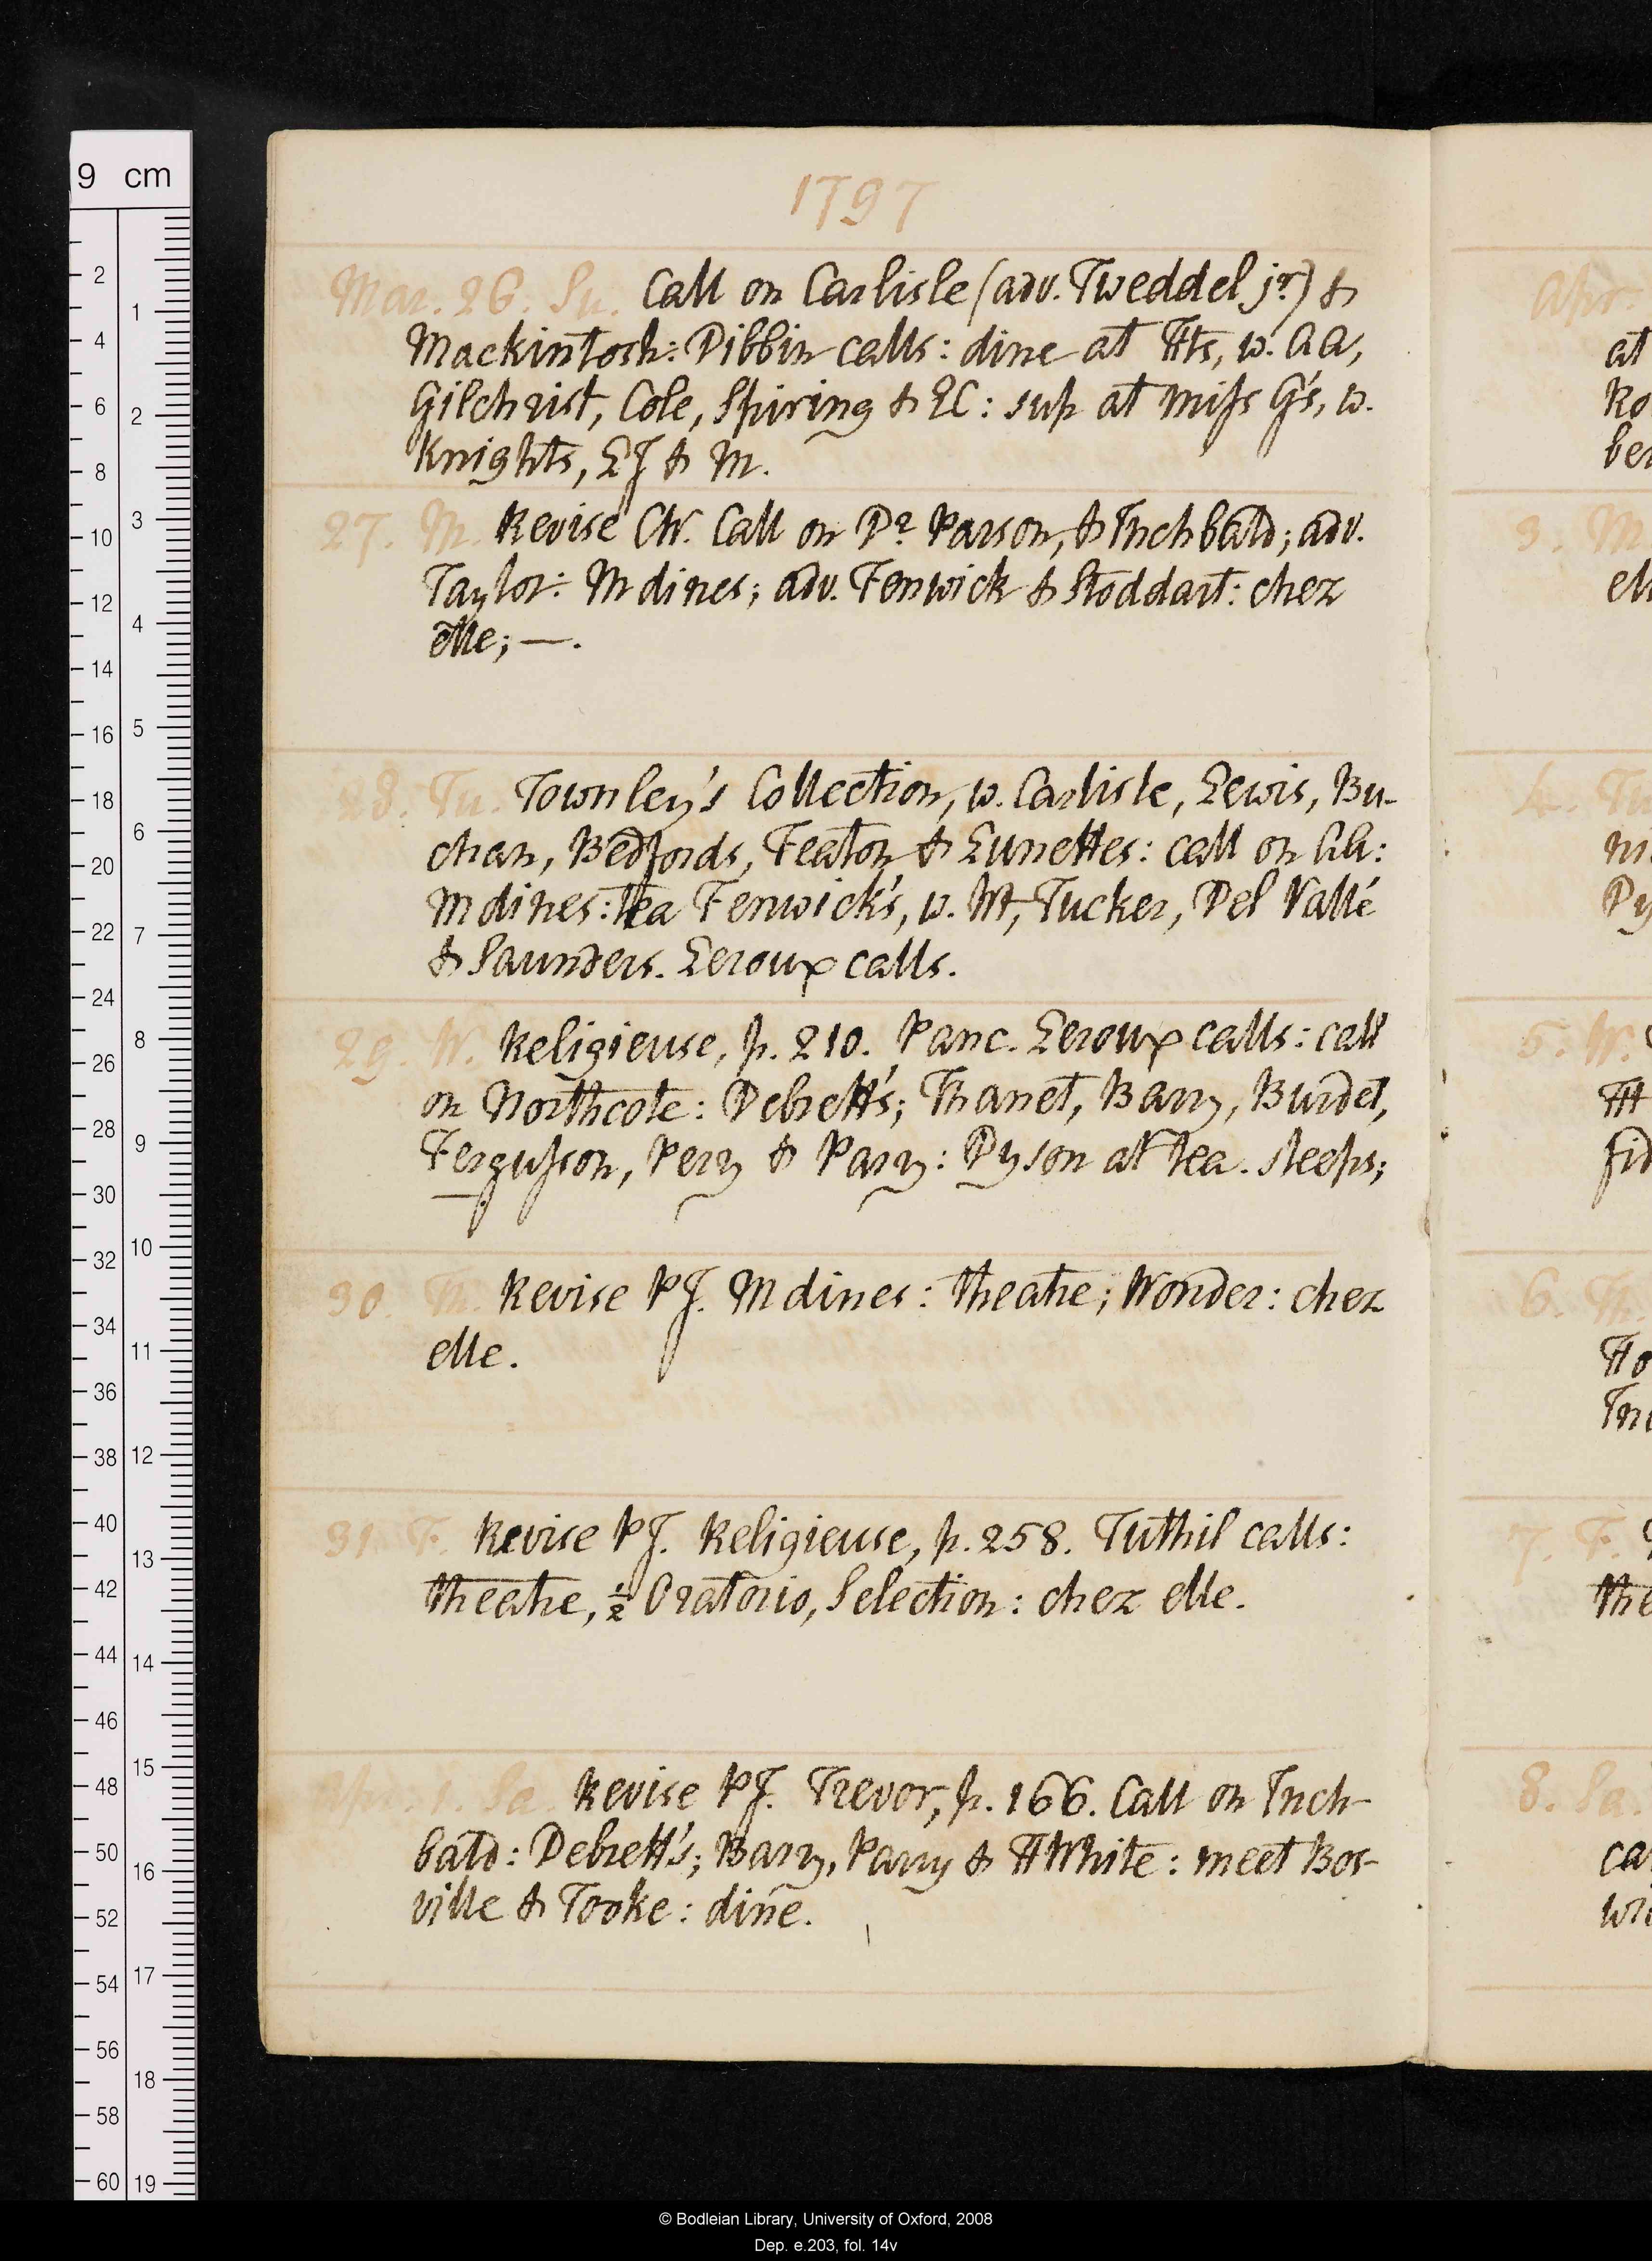 1797
Mar. 26. Su. Call on Carlisle (adv. Tweddel jr) &
Mackintosh: Dibbin calls: dine at Hts, w. AA,
Gilchrist, Cole, Spiring & LC: sup at miss G's, w.
Knights, LJ & M.
27. M. Revise CW. Call on Dr Parson, & Inchbald; adv.
Taylor: M dines; adv. Fenwick & Stoddart: chez
elle; —.
28. Tu. Townley's Collection, w. Carlisle, Lewis, Bu-
chan, Bedfords, Featon & Lunettes: call on AA:
M dines: tea Fenwick's, w. Wt, Tucker, Del Vallé
& Saunders. Leroux calls.
29. W. Religieuse, p. 210. Panc. Leroux calls: call
on Northcote: Debrett's; Thanet, Barry, Burdet,
Fergusson, Perry & Parry: Dyson at tea. sleeps;
30. Th. Revise PJ. M dines: theatre; Wonder: chez
elle.
31. F. Revise PJ. Religieuse, p. 258. Tuthil calls:
theatre, ½ Oratorio, Selection: chez elle.
Apr. 1. Sa. Revise PJ. Trevor, p. 166. Call on Inch-
bald: Debrett's; Barry, Parry & HWhite: meet Bos-
ville & Tooke: dine.
Apr.
at
Ro
ber
3. M
ell
4. Tu
Dy
5. W.
Ht
fid
6. Th.
Ho
Inc
7. F.
the
8. Sa.
ca
wri
9 cm
2 4 6 8 10 12 14 16 18 20 22 24 26 28 30 32 34 36 38 40 42 44 46 48 50 52 54 56 58 60
1 2 3 4 5 6 7 8 9 10 11 12 13 14 15 16 17 18 19
© Bodleian Library, University of Oxford, 2008
Dep. e.203, fol. 14v